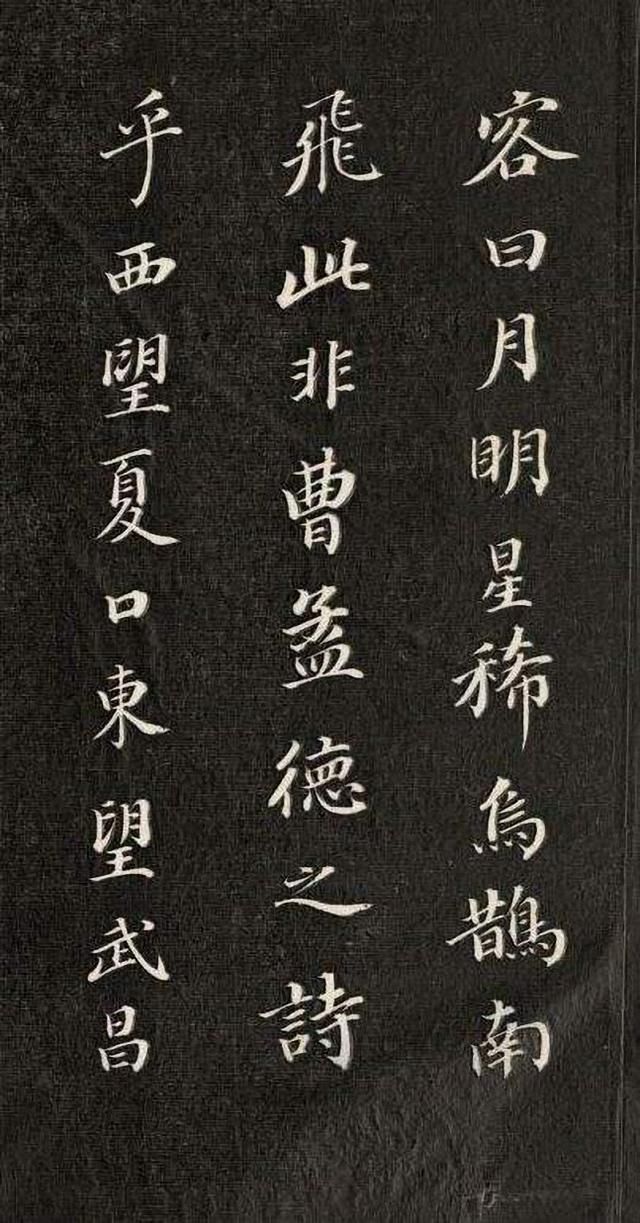 客曰月明星稀烏鵲南
飛此非曹孟德之詩
乎西望夏口東望武昌